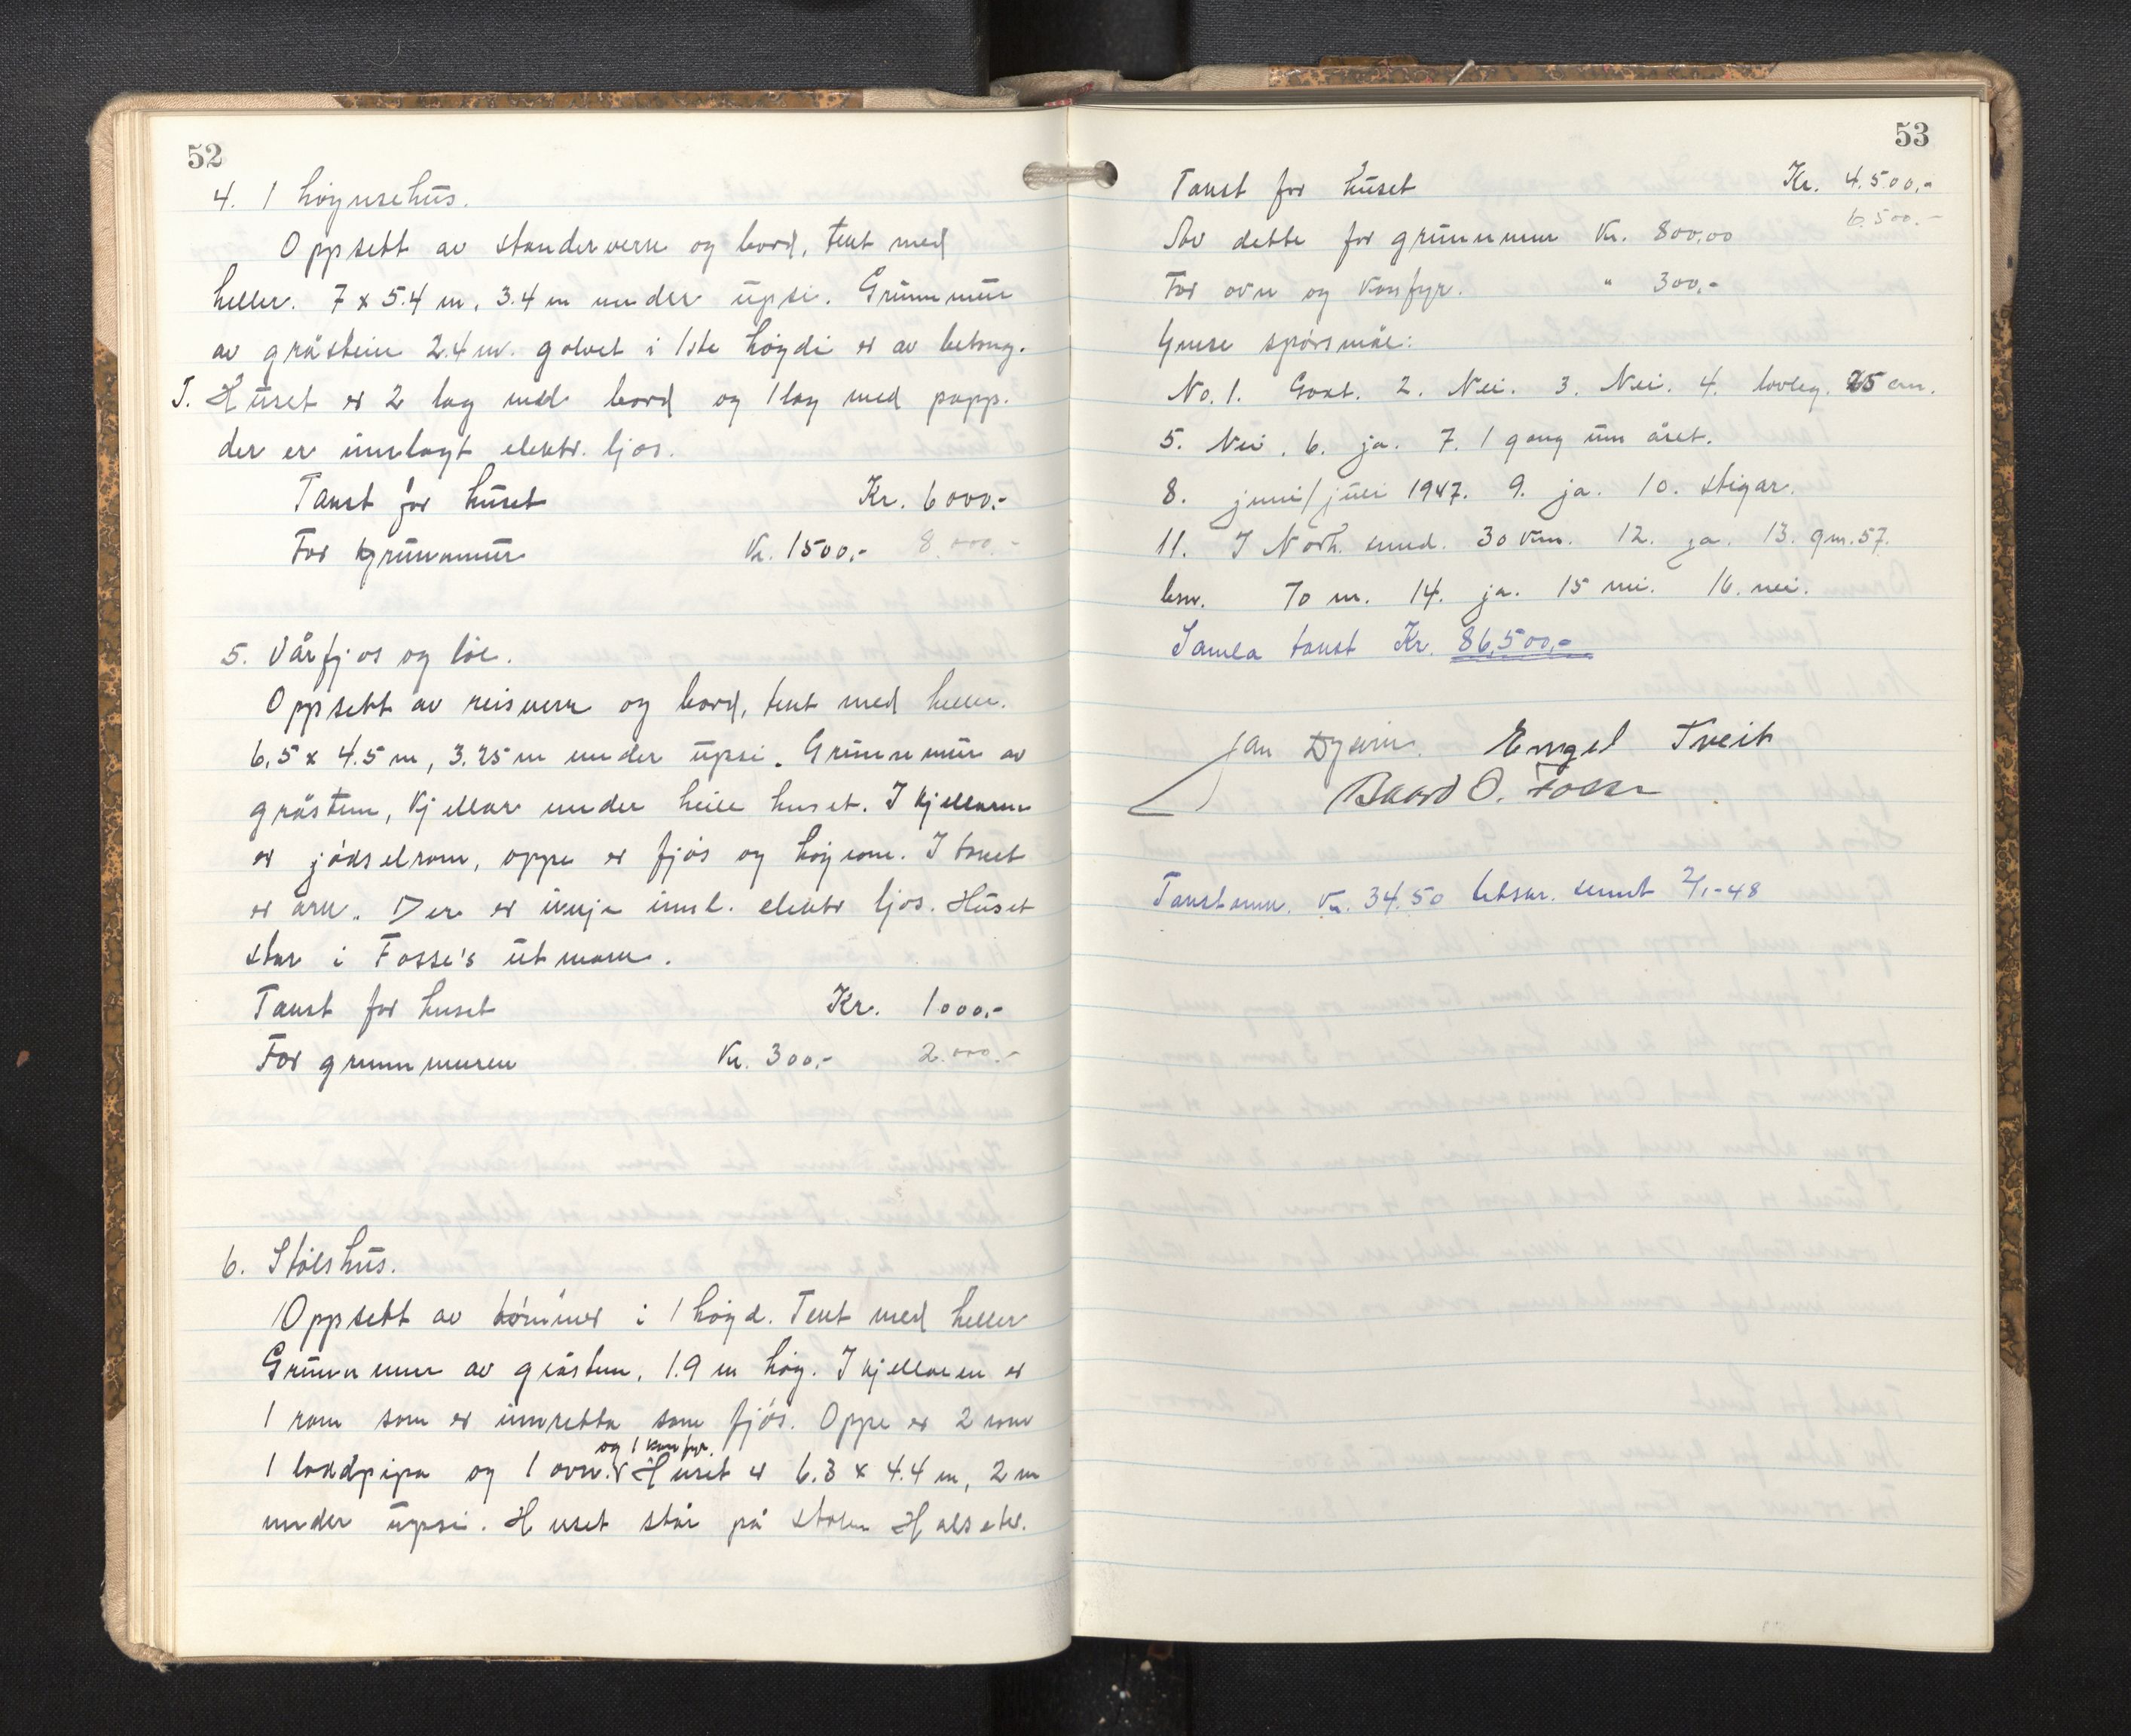 52
4. 1 høynsehus.
Oppsett av standerverk og bord, tekt med
heller. 7 x 5.4 m, 3.4 m under upsi. Grunnmur
av gråstein 2.4 m. golvet i 1ste høgdi er av betong.
I. Huset er 2 lag med bord og 1 lag med papp.
der er innlagt elektr. ljos.
Takst for huset Kr. 6000.-
For grunnmur Kr. 1500,- 8.000.-
5. Vårfjos og løe.
Oppsett av reisverk og bord, tekt med heller.
6,5 x 4.5 m, 3.25 m under upsi. Grunnmur av
gråstein, kjellar under heile huset. I kjellaren
er jødselrom, oppe er fjøs og høyrom. I taket
er ark. Der er ikkje innl. elektr ljos. Huset
står i Fosse's utmark.
Takst for huset Kr. 1000.-
For grunnmuren Kr. 300,- 2.000.-
6. Stølshus.
Oppsett av tømmer i 1 høgd. Tekt med heller
Grunnmur av gråstein, 1.9 m høg. I kjellaren er
1 rom som er innretta som fjøs. Oppe er 2 rom
og 1 komfyr.
1 loddpipa og 1 ovn. Huset er 6.3 x 4.4 m, 2 m
under upsi. Huset står på stølen Halseter.
53
Takst for huset Kr. 4.500,-
6.500.-
Av dette for grunnmur Kr. 800,00
For ovn og komfyr. " 300,-
Ymse spørsmål:
No. 1. Godt. 2. Nei. 3. Nei. 4. lovleg. 25 cm.
5. Nei. 6. ja. 7. 1 gong um året.
8. juni/juli 1947. 9. ja. 10. stigar.
11. I Norh. sund. 30 km. 12. ja. 13. gm. 57.
bnr. 70 m. 14. ja. 15 nei. 16. nei.
Samla takst Kr. 86,500,-
Jan Engel Tveit
Baard O. Fosse
Takst Kr. 34.50 sendt 2/1-48